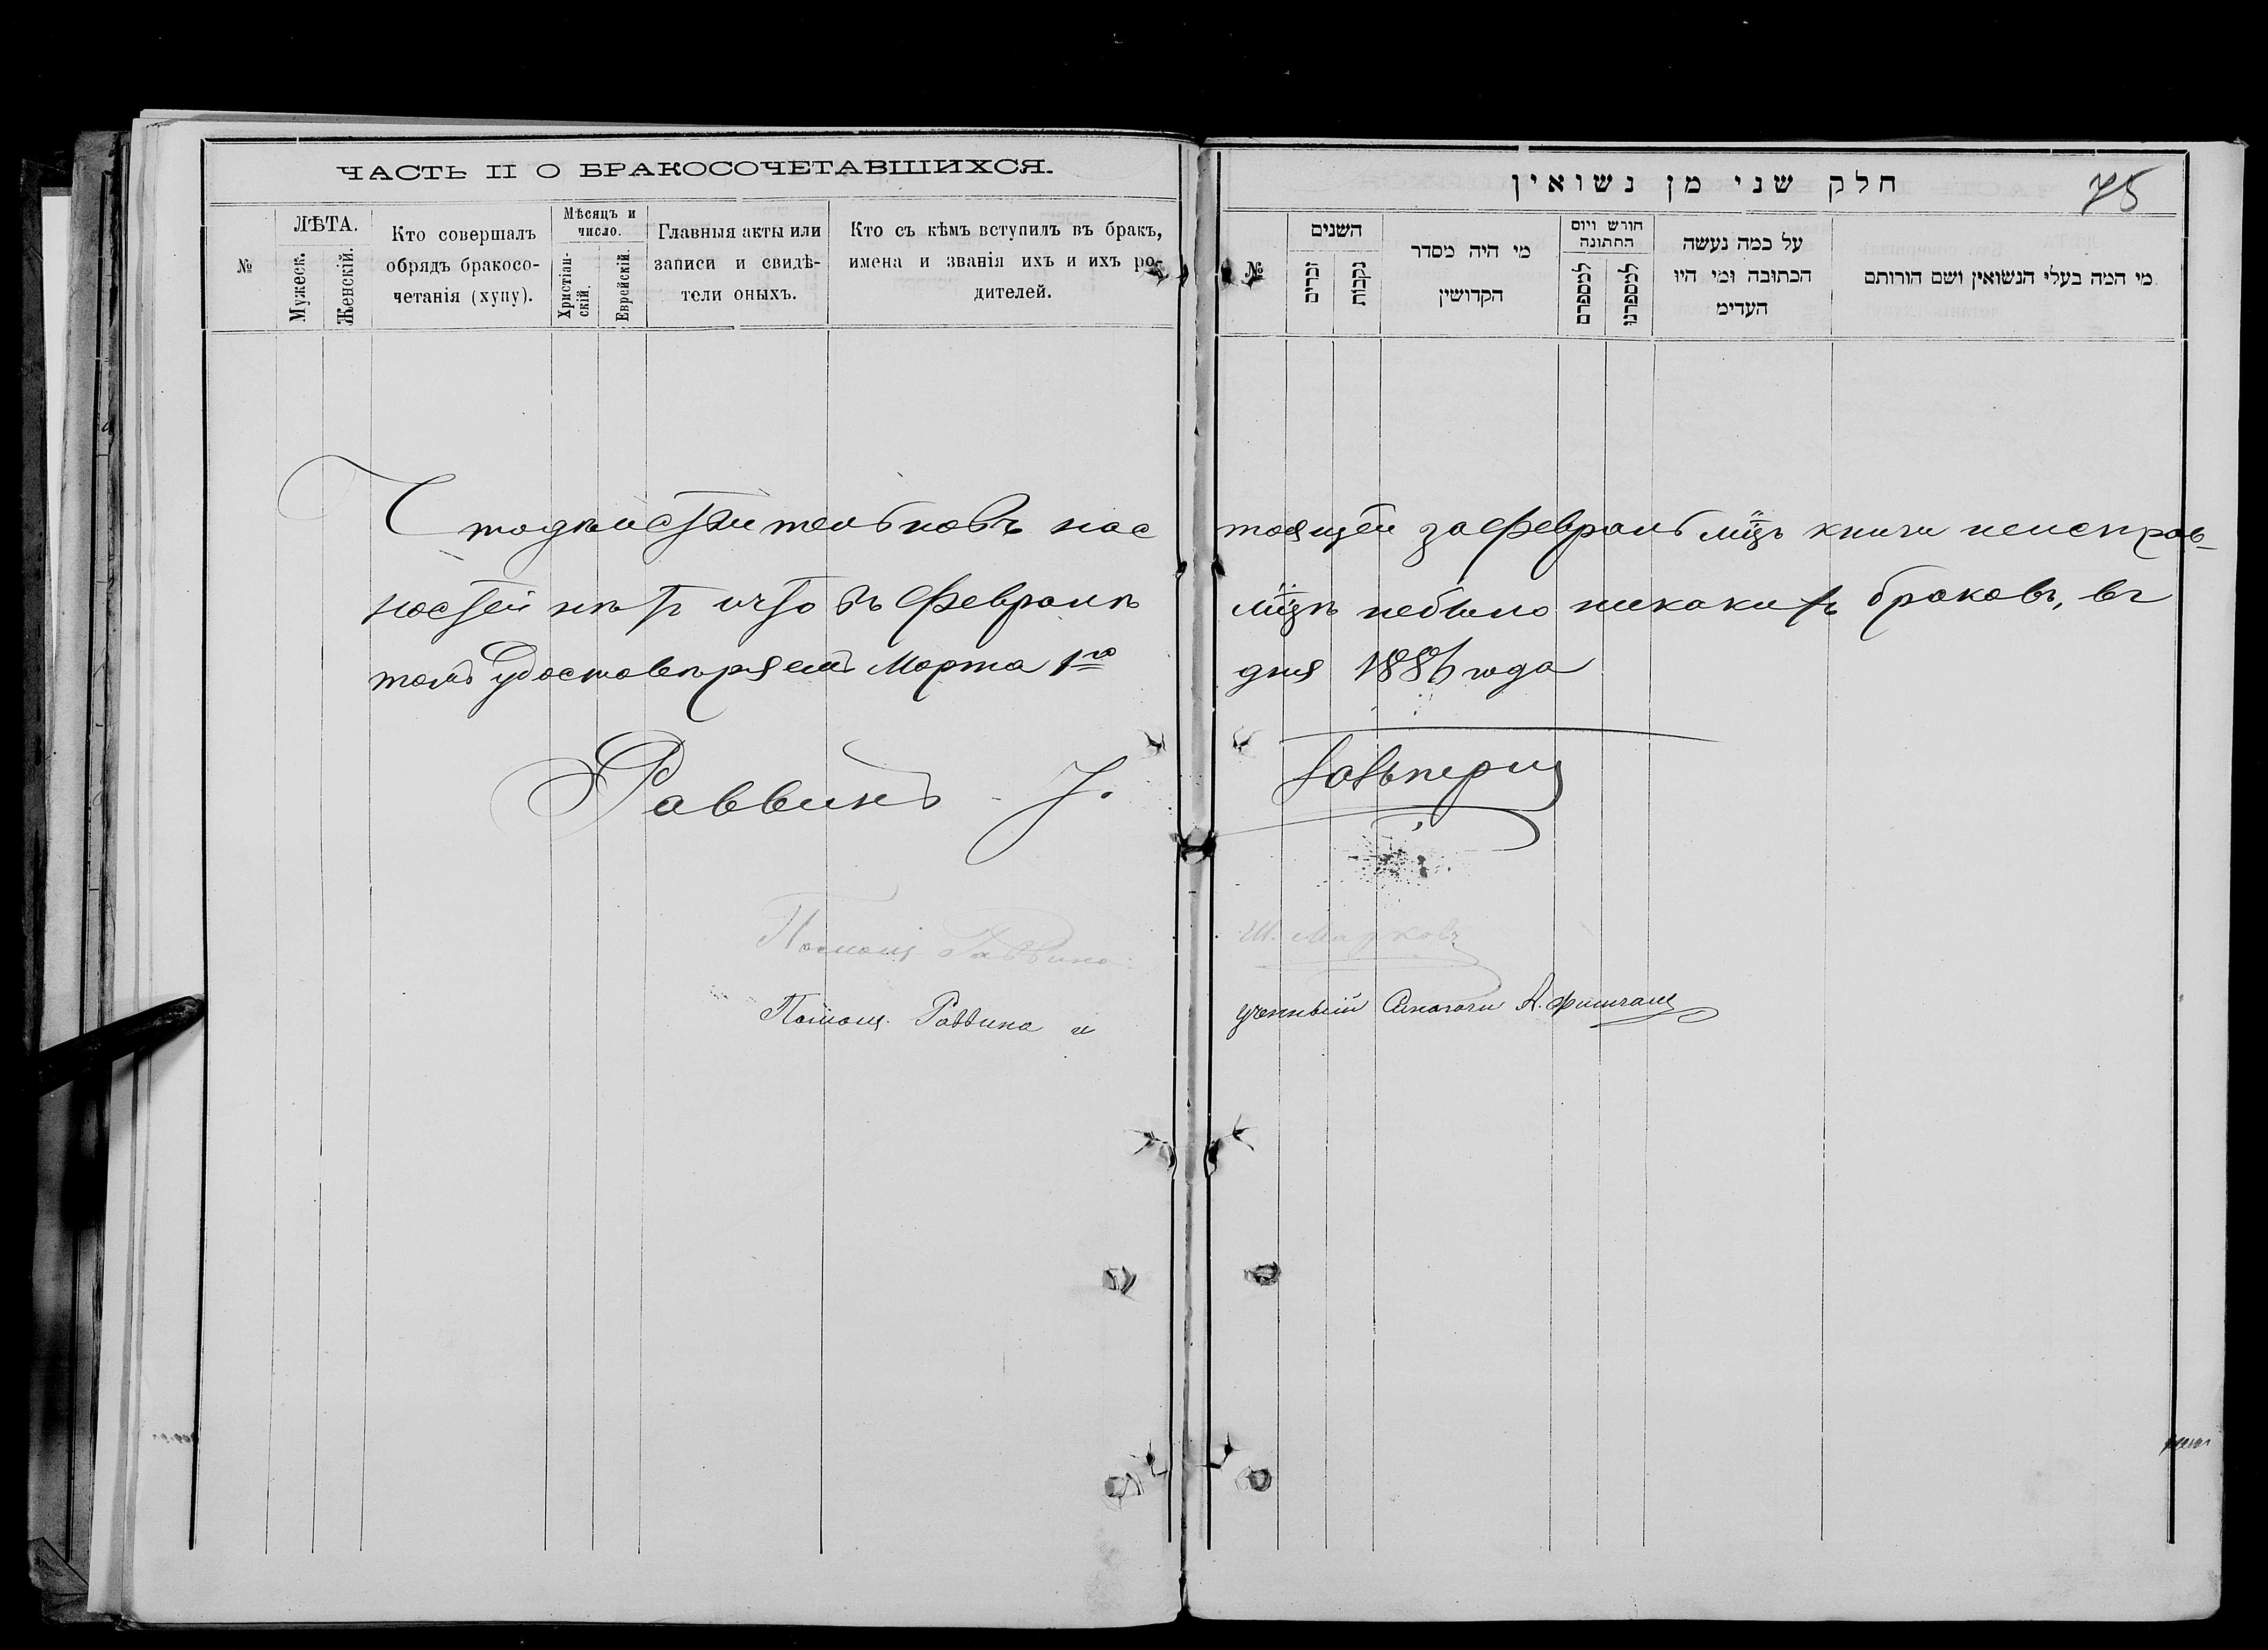 ЧАСТЬ II О БРАКОСОЧЕТАВШИХСЯ.
№
ЛѢТА.
Мужеск.
Женскій.
Кто совершалъ
обрядъ бракосо-
четанія (хупу).
Мѣсяцъ и
число.
Христіан-
скій.
Еврейскій.
Главныя акты или
записи и свидѣ-
тели оныхъ.
Кто съ кѣмъ вступилъ въ бракъ,
имена и званія ихъ и ихъ ро-
дителей.
חלק שני מן נשואין
75
№
השנים
זכרים
נקבות
מי היה מסדר
הקדושין
חורש ויום
החתונה
למספרם
למספרנו
על כמה נעשה
הכתובה ומי היו
העדים
מי המה בעלי הנשואין ושם הורותם
Что дѣйствительно въ нас тоящей за Февраль мцъ книги неисправ-
ностей нѣтъ и что въ Февралѣ мцѣ небыло никакихъ браковъ, въ
томъ удостовѣряемъ Марта 1го дня 1886 года
Раввинъ Гальперин
Помощ Раввина Ш. Марковъ
Помощ. Раввина и ученный Синагоги А.